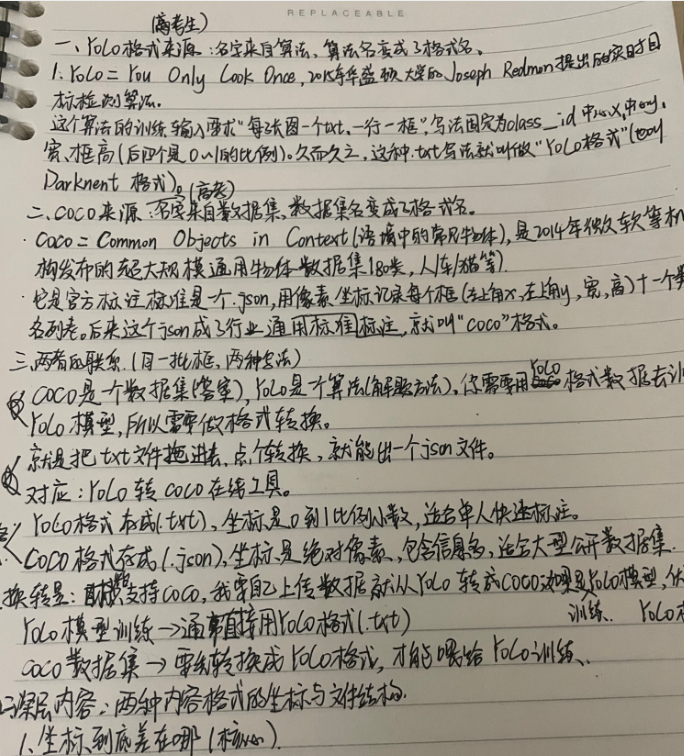 REPLACEABLE
(高考生)
一、YOLO格式来源:名字来自算法、算法名变成了格式名。
1. YOLO = You Only Look Once, 2015年华盛顿大学的Joseph Redmon提出的实时目
标检测算法。
这个算法的训练输入要求"每张图一个txt,一行一框",写法固定为class_id 中心x,中心y,
宽、框高(后四个是0~1的比例)。久而久之,这种.txt写法就叫做"YOLO格式"(也叫
Darknent 格式)。(高考)
二、COCO来源:名字来自数据集、数据集名变成了格式名。
· COCO = Common Objects in Context(语境中的常见物体),是2014年微软等机
构发布的超大规模通用物体数据集(80类,人/车/猫等)
· 它是官方标注标准是一个.json,用像素坐标记录每个框(左上角x,左上角y,宽,高)+一个类
名列表。后来这个json成了行业通用标准标注,就叫"COCO"格式。
三、两者的联系(同一批框、两种写法)
COCO是一个数据集(答案),YOLO是一个算法(解题方法)。你需要用YOLO格式数据去训
YOLO模型,所以需要做格式转换。
就是把txt文件拖进去,点个转换,就能出一个json文件。
对应:YOLO转COCO在线工具。
YOLO格式存成(.txt),坐标是0到1比例小数,适合单人快速标注。
COCO格式存成(.json),坐标是绝对像素、包含信息多,适合大型公开数据集.
换转是:支持COCO,我要自己上传数据就从YOLO转成COCO;如果是YOLO模型,
训练. YOLO
YOLO模型训练→通常直接用YOLO格式(.txt)
COCO数据集→要先转换成YOLO格式,才能喂给YOLO训练.
深层内容:两种内容格式的坐标与文件结构.
1、坐标到底差在哪(核心).